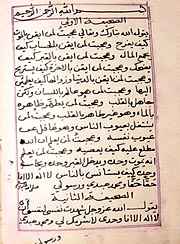 بسم الله الرحمن الرحيم
الصحيفة الاولى
يقول الله تبارك وتعالى عجبت لمن ايقن بالموت
كيف يفرح وعجبت لمن ايقن بالحساب كيف
يجمع المال وعجبت لمن ايقن بالقبر كيف
وعجبت لمن ايقن بالدنيا وزوالها كيف يطمئن
وعجبت لمن هو عالم باللسان
جاهل بالقلب وعجبت لمن يطهر ظاهره
بالماء وهو غير طاهر بالقلب وعجبت لمن
يشتغل بعيوب الناس وهو غافل عن
عيوب نفسه وعجبت لمن يعلم ان الله
مطلع عليه كيف يعصيه وعجبت لمن يعلم
انه يموت وحده ويدخل القبر وحده ويحاسب
وحده كيف يستانس بالناس لا اله الا انا
حقا حقا ومحمد عبدي ورسولي
الصحيفة الثانية
يقول الله عز وجل شهدت نفسي لنفسي ان
لا اله الا انا وحدي لا شريك لي ومحمد عبدي
ورسولي